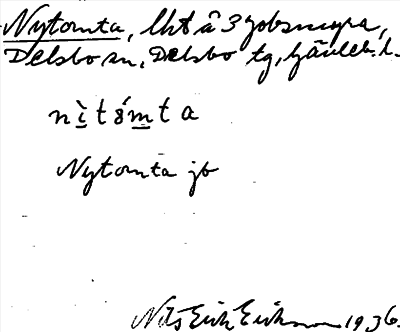 Nytomta, lht å 3 gobsmyra,
Delsbo sn, Delsbo tg, Gävleb. l.
nìtómta
Nytomta jb
Nils Erik Eriksson 1936.